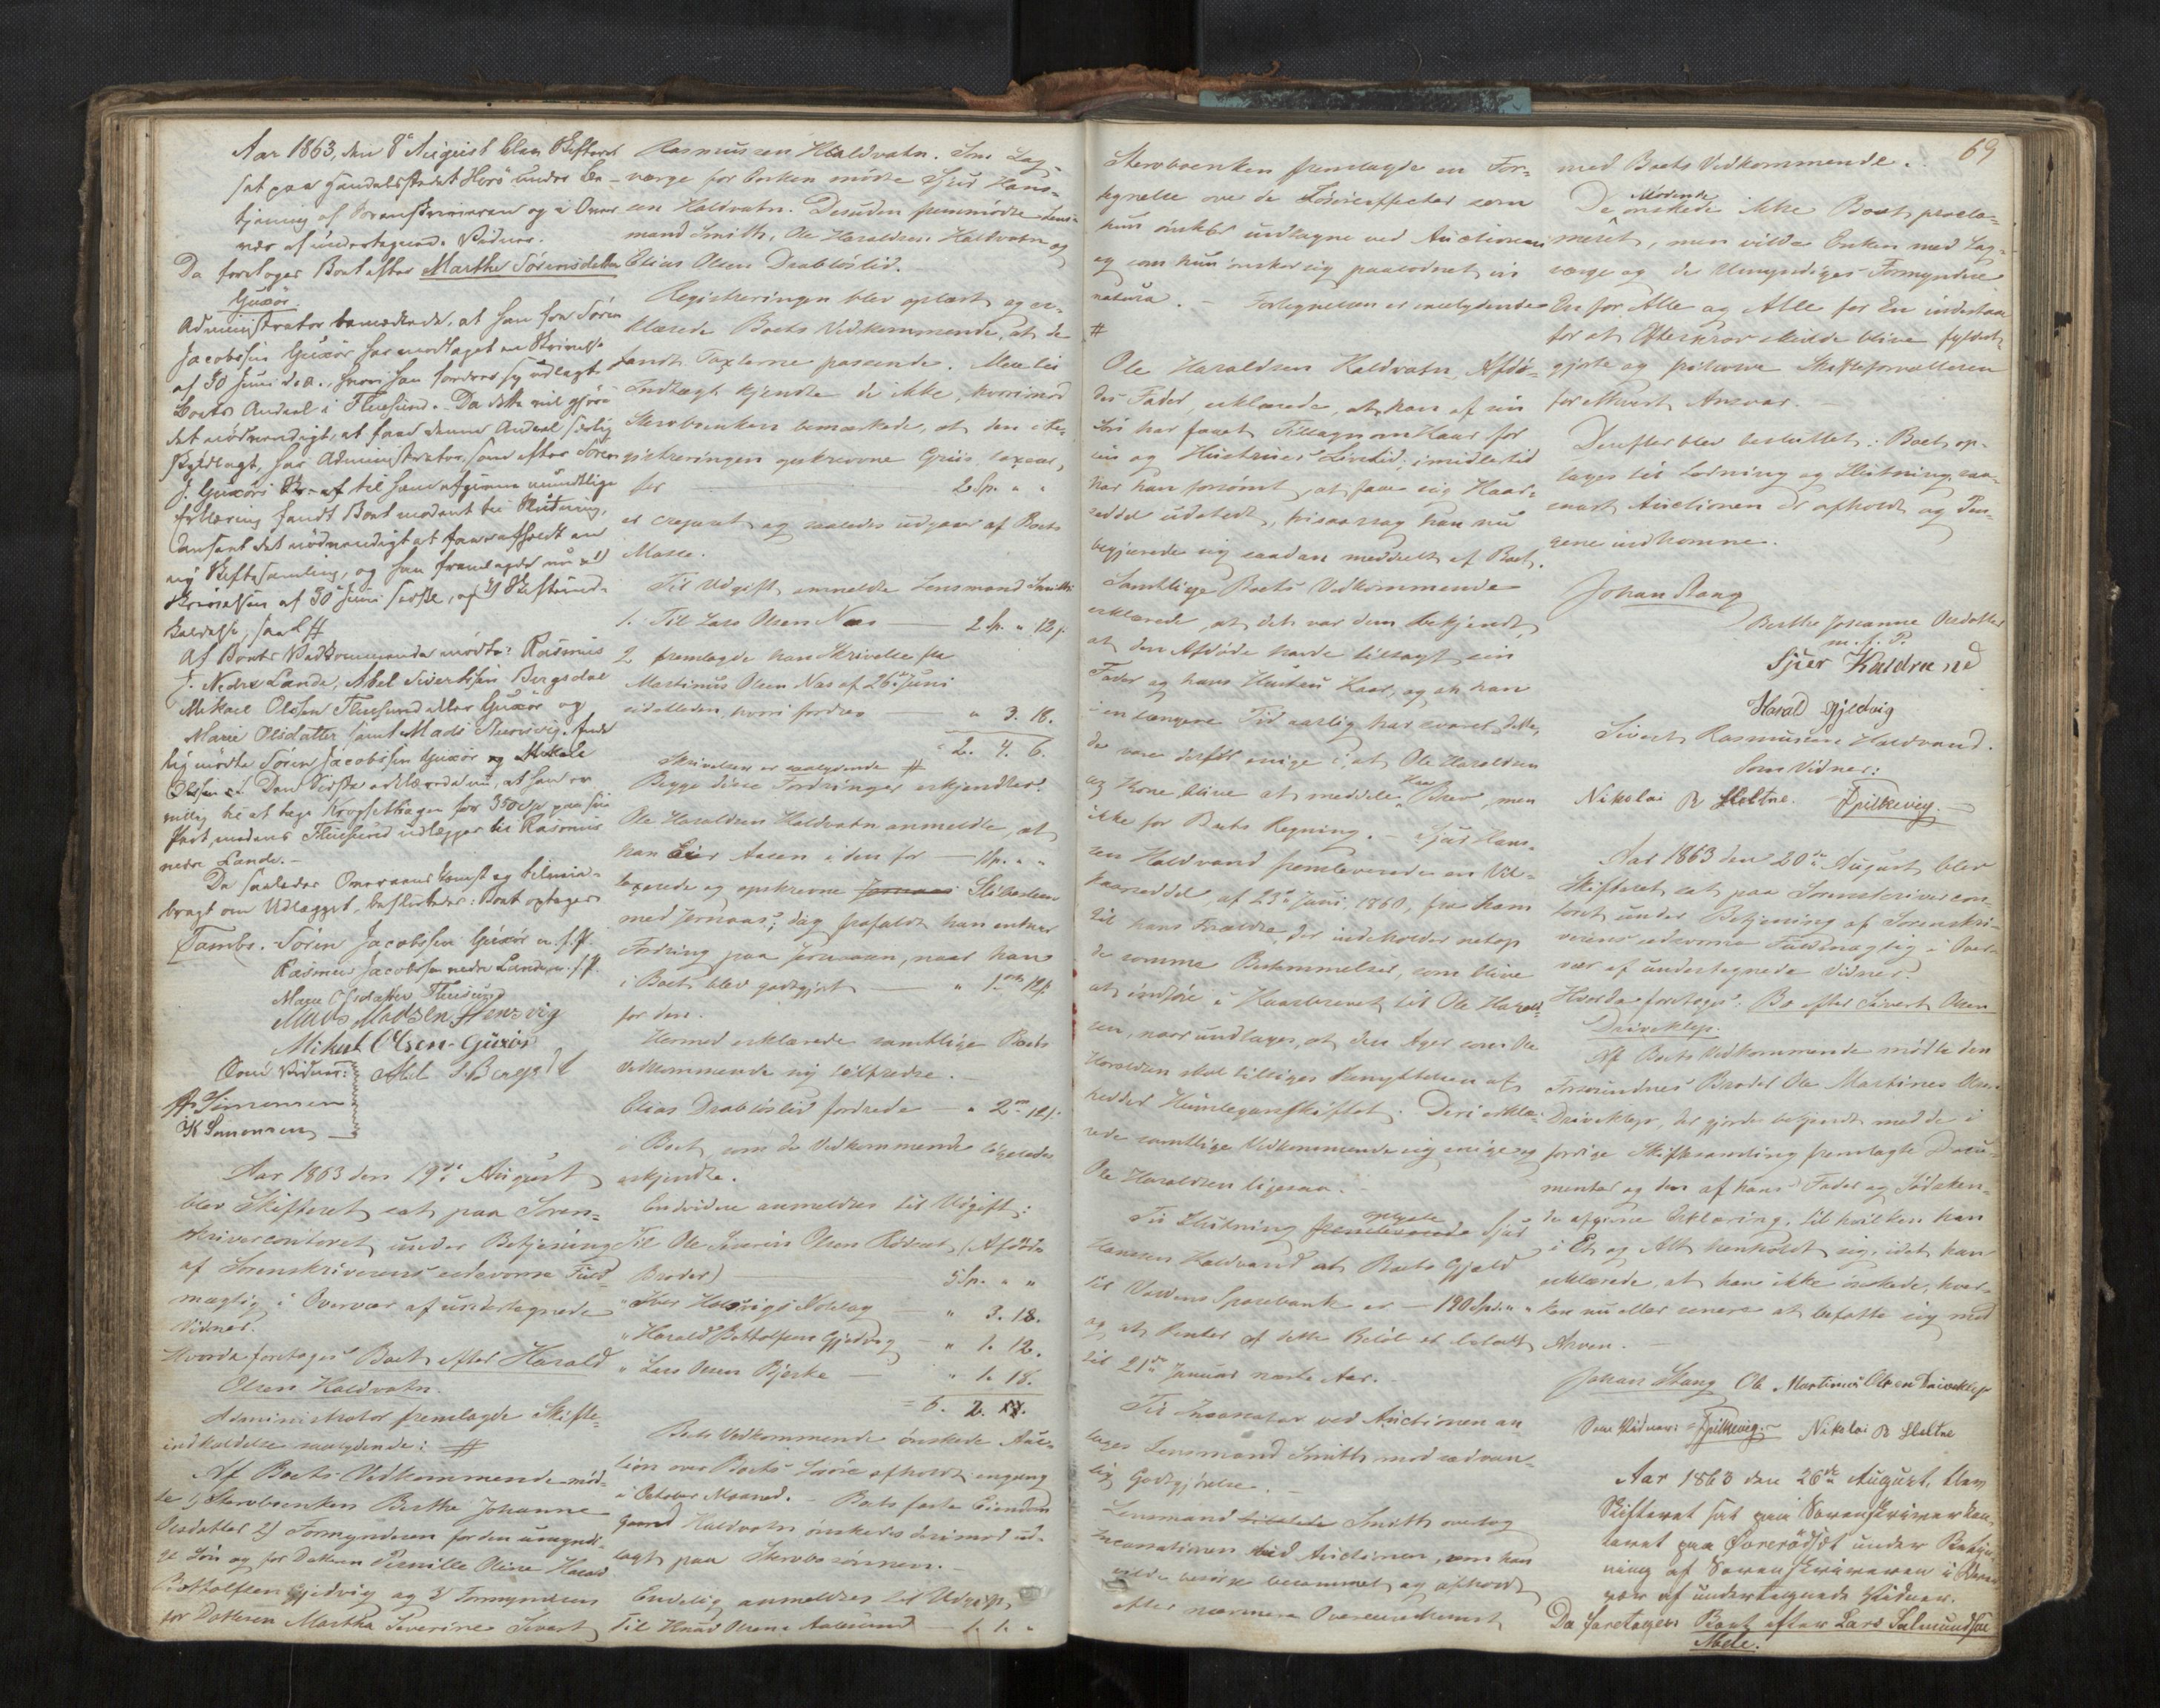 Aar 1863, den 8de August blev Skifteret
sat paa Handelsstedet Herö under Be-
tjening af Sorenskriveren og i Over
vær af undertegnede Vidner.
Da foretoges Boet efter Marthe Sörensdatter
Guxör.
Administrator bemærkede, at han fra Sören
Jacobssen Guxör har modtaget en Skrivelse
af 30 Juni d. a., hvori han fordrer sig udlagt
Boets Andeel i Fluesund. Da dette vil gjöre
det nödvendigt, at faae denne Andeel særlig
skyldlagt, har Administrator, som efter Sören
J. Guxörs til ham afgivne mundtlige
Erklæring fandt Boet modent til Slutning,
anseet det nödvendigt at faae afholdt en
ny Skiftesamling, og han fremlagde nu 1)
Skrivelsen af 30 Juni sidste, og 2) Skifteind-
kaldelse, saal. #
Af Boets Vedkommende mödte: Rasmus
J. Nedre Lande, Abel Sivertssen Bergsdal
Mikael Olssen Fluesund eller Guxör og
Marie Olsdatter samt Mads Stensvig. Ende
lig mödte Sören Jacobssen Guxör og Mikale
Olssen
villig til at tage Krogsethagen for 350 Spd paa sin
Part, medens Fluesund udlægges til Rasmus
nedre Lande.-
Da saaledes Overeenskomst er tilveie-
bragt om Udlægget, besluttedes: Boet optages
Tambs. Sören Jacobssen Guxör m. f. P.
Rasmus Jacobssen nedre Lande m. f. P.
Marie Olsdatter Fluesund
Mads Madsen Stensvig
Mikael Olsen Guxör
Som Vidner: Abel S. Bergsdal
Simonsen
K Simonsen
Aar 1863 den 19de August
blev Skifteret sat paa Soren-
skrivercontoret under Betjening
af Sorenskriverens edsvorne Fuld-
mægtig i Overvær af undertegnede
Vidner.
Hvorda foretoges Boet efter Harald
Olsen Haldvatn.
Administrator fremlagde Skifte-
indkaldelse saalydende: #
Af Boets Vedkommende möd-
te 1) Stervboenken Berthe Johanne
Olsdatter 2) Formynderen for den umyndi-
ge Sön og for Datteren Pernille Oline Harald
Bottolfsen Gjedvig og 3) Formynderen
for Datteren Martha Severine Sivert
Rasmussen Haldvatn. Som Lag-
værge for Enken mödte Sjur Hans-
sen Haldvatn. Desuden fremmödte Lens-
mand Smith, Ole Haraldsen Haldvatn og
Elias Olsen Drablöslid.
Registreringen blev oplæst og er-
klærede Boets Vedkommende, at de
fandt Taxterne passende. Mere til
Indtægt kjendte de ikke, hvorimod
Stervboenken bemærkede, at den i Re-
gistreringen opskrevne Griis, taxeret,
for — 2 Sp. " "
er creperet og saaledes udgaar af Boets
Masse.
Til Udgift anmeldte Lensmand Smith:
1. Til Lars Olsen Nas — 2 Sp. " 12 s.
2 fremlagde han Skrivelse fra
Martinus Olsen Nas af 26de Juni
sidstleden, hvori fordres — " 3. 18.
= 2. 4. 6.
Skrivelsen er saalydende #
Begge disse Fordringer erkjendtes.
Ole Haraldsen Haldvatn anmeldte, at
han Eier Aasen i den for — 1 Sp. " "
taxerede og opskrevne
med Jernaas; dog frafaldt han enhver
Fordring paa Jernaasen, naar han
i Boet blev godtgjort — " 1 ort 12 s.
for den.
Hermed erklærede samtlige Boets
Vedkommende sig tilfredse.
Elias Drablöslid fordrede — " 2 ort 12 s.
i Boet, som de Vedkommende ligeledes
erkjendte.
Endvidere anmeldtes til Udgift:
Til Ole Severin Olsen Rödset (Afdödes
Broder) — 5 Sp. " "
" Iver Notelag — " 3. 18.
" Harald Bottolfsen Gjedvig — " 1. 12.
" Lars Olsen Bjerke — " 1. 18.
= 6. 2.
Boets Vedkommende önskede Auc-
tion over Boets Lösöre afholdt engang
i October Maaned. - Boets faste Eiendom
Gaard Haldvatn önskedes derimod ud-
lagt paa Stervbosönnen.
Endelig anmeldtes til Udgift,
Til Knud Olsen Aalesund — 1. 1. "
69
Stervboenken fremlagde en For-
tegnelse over de Lösöreeffecter som
hun önsker undtagne ved Auctionen
og som hun önsker sig paalodnet in
natura. - Fortegnelsen er saalydende
#
Ole Haraldsen Haldvatn, Afdö-
des Fader, erklærede, at han af sin
Sön har faaet Tilsagn om Kaar for
sin og Hustrues Livstid; imidlertid
har han forsömt, at faae sig Kaar-
seddel udstedt, hvisaarsag han nu
begjærede sig saadan meddeelt af Boet.
Samtlige Boets Vedkommende
erklærede, at det var dem bekjendt,
at den Afdöde havde tilsagt sin
Fader og hans Hustru Kaar, og at han
i en længere Tid aarlig har svaret dette,
de vare derfor enige i, at Ole Haraldsen
og Kone, blive at meddele Kaar Brev, men
ikke for Boets Regning. - Sjur Hans-
sen Haldvand fremleverede en Vil-
kaarseddel, af 23de Juni 1860, fra ham
til hans Forældre, der indeholder netop
de samme Bestemmelser, som blive
at indföre i Kaarbrevet til Ole Harald-
sen, naar undtages, at den Ager som Ole
Haraldsen skal tillægges Benyttelsen af
hedder Humlegardskiftet. Deri erklæ-
rede samtlige Vedkommende sig enige og
Ole Haraldsen ligesaa.
Til Slutning oplyste Sjur
Hanssen Haldvand at Boets Gjæld
til Voldens Sparebank er — 190 Spd. " "
og at Renter af dette Belöb er betalt
til 21de Januar næste Aar.
Til Incassator ved Auctionen an
toges Lensmand Smith mod sædvan-
lig Godtgjörelse. -
Lensmand Smith overtog
Incassationen ved Auctionen, som han
vilde besörge berammet og afholdt
efter nærmere Overeenskomst
med Boets Vedkommende.
De Mödende önskede ikke Boet procla-
meret, men vilde Enken med Lag-
værge og de Umyndiges Formyndere
En for Alle og Alle for En indestaae
for at Efterkrav skulde blive fyldest-
gjorte og fritoge Skifteforvalteren
for ethvert Ansvar.
Derefter blev besluttet: Boet op-
tages til Lodning og Slutning, saa-
snart Auctionen er afholdt og Pen-
gene indkomne.
Johan Stang
Berthe Johanne Olsdatter
m. f. P.
Sjur Haldvand
Harald Gjedvig
Sivert Rasmusen Haldvand.
Som Vidner:
Nikolai R Sletne. Spilkevig.
Aar 1863 den 20de August blev
Skifteret sat paa Sorenskrivercon-
toret under Betjening af Sorenskri-
verens edsvorne Fuldmægtig i Over-
vær af undertegnede Vidner.
Hvorda foretoges: Bo efter Sivert Olsen
Driveklep.
Af Boets Vedkommende mödte den
Forsvundnes Broder Ole Martinus Olsen
Driveklep, der gjorde bekjendt med de i
forrige Skiftesamling fremlagte Docu-
menter og den af hans Fader og Södsken-
de afgivne Erklæring, til hvilken han
i Et og Alt henholdt sig, idet han
erklærede, at han ikke önskede, hver-
ken nu eller senere at befatte sig med
Arven. —
Johan Stang Ole Martinus Olsen Driveklep
Som Vidner: Spilkevig. Nikolai R Sletne
Aar 1863 den 26de August, blev
Skifteret sat paa Sorenskriverkon-
toret paa Overödset under Betje-
ning af Sorenskriveren i Over-
vær af undertegnede Vidner.
Da foretoges Boet efter Lars Salmundssen
Mele.